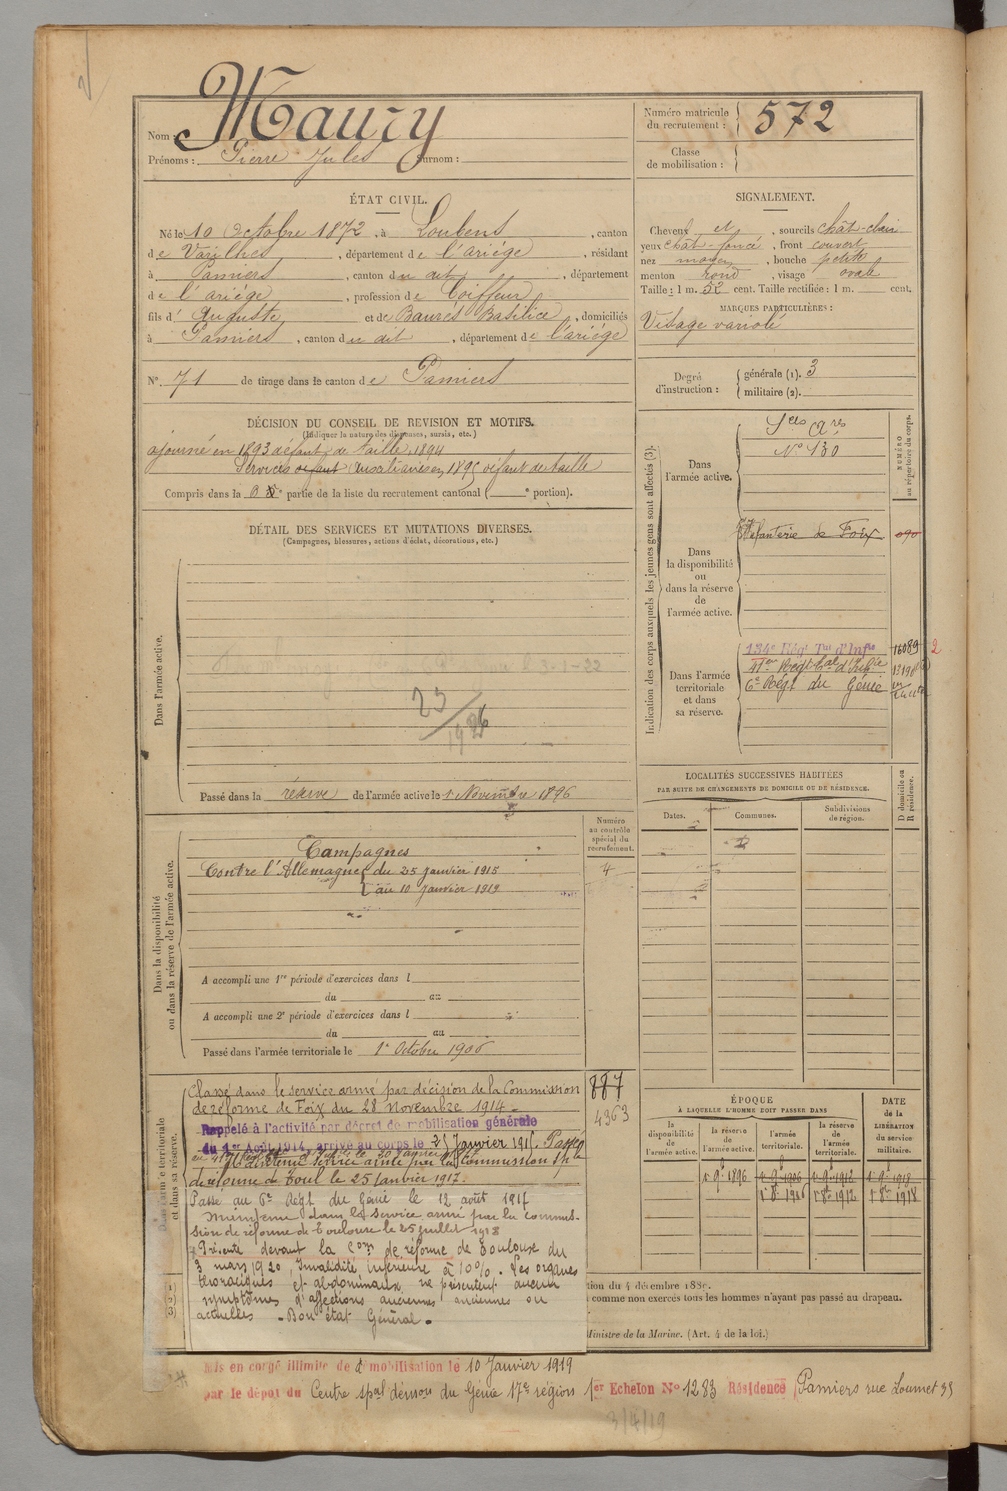 Nom : Maury
Prénoms : Pierre Jules Surnom :
Numéro matricule
du recrutement : 572
Classe
de mobilisation :
ÉTAT CIVIL.
Né le 10 Octobre 1872, à Loubens, canton
de Varilhes, département de l'ariége, résidant
à Pamiers, canton du dit, département
de l'ariége, profession de Coiffeur
fils d' Auguste et de Baurés Basilice, domiciliés
à Pamiers, canton du dit, département de l'ariége
N° 71 de tirage dans le canton de Pamiers
SIGNALEMENT.
Cheveux et, sourcils chât-clair
yeux chât-foncé, front couvert
nez moyen, bouche petite
menton rond, visage ovale
Taille : 1 m. 52 cent. Taille rectifiée : 1 m. cent.
MARQUES PARTICULIÈRES :
Visage variolé
Degré
d'instruction :
générale (1). 3
militaire (2).
DÉCISION DU CONSEIL DE REVISION ET MOTIFS.
(Indiquer la nature des dispenses, sursis, etc.)
ajourné en 1893 défaut de taille, 1894
Services défaut Auxiliaires en 1895 défaut de taille
Compris dans la partie de la liste du recrutement cantonal ( e portion).
DÉTAIL DES SERVICES ET MUTATIONS DIVERSES.
(Campagnes, blessures, actions d'éclat, décorations, etc.)
Dans l'armée active.
23/1926
Passé dans la réserve de l'armée active le 1er Novembre 1896
Indication des corps auxquels les jeunes gens sont affectés (3).
NUMÉRO
au répertoire du corps.
Dans
l'armée active.
Sces Ares
N° 130
Dans
la disponibilité
ou
dans la réserve
de
l'armée active.
Infanterie de Foix 090
Dans l'armée
territoriale
et dans
sa réserve.
134e Régt Tal d'Infie 16089 2
41er Régt tal d'Infie
6e Régt du Génie
LOCALITÉS SUCCESSIVES HABITÉES
PAR SUITE DE CHANGEMENTS DE DOMICILE OU DE RÉSIDENCE.
Dates.
Communes.
Subdivisions
de région.
D domicile ou
R résidence.
Dans la disponibilité
ou dans la réserve de l'armée active.
Numéro
au contrôle
spécial du
recrutement.
4
Campagnes
Contre l'Allemagne du 25 janvier 1915
au 10 janvier 1919
A accompli une 1re période d'exercices dans l
du au
A accompli une 2e période d'exercices dans l
du au
Passé dans l'armée territoriale le 1er Octobre 1906
Dans l'armée territoriale
et dans sa réserve.
887
4363
Classé dans le service armé par décision de la Commission
de réforme de Foix du 28 Novembre 1914.
Rappelé à l'activité par décret de mobilisation générale
du 1er Août 1914, arrivé au corps le 25 Janvier 1915. Passé
Maintenu service armé par la Commission Sple
de réforme de Toul le 25 janvier 1917.
Passé au 6e Régt du Génie le 12 août 1917
Maintenu dans le service armé par la commis-
sion de réforme de Toulouse le 25 juillet 1918
Présenté devant la Com de réforme de Toulouse du
3 mars 1920, Invalidité inférieure à 10%. Les organes
thoraciques et abdominaux ne présentent aucun
symptômes d'affections anciennes ou
actuelles - Bon état Général.
ÉPOQUE
À LAQUELLE L'HOMME DOIT PASSER DANS
la
disponibilité
de
l'armée active.
la réserve
de
l'armée active.
l'armée
territoriale.
la réserve
de l'armée
territoriale.
DATE
de la
LIBÉRATION
du service
militaire.
1er 9bre 1896 1er 9bre 1906 1er 9bre 1912 1er 9bre 1918
1er 8bre 1906 1er 8bre 1912 1er 8bre 1918
(1)
(2)
(3)
tion du 4 décembre 1889.
comme non exercés tous les hommes n'ayant pas passé au drapeau.
Ministre de la Marine. (Art. 4 de la loi.)
Mis en congé illimité de démobilisation le 10 Janvier 1919
par le dépôt du Centre spal démon du Génie 17e région 1er Echelon N° 1283 Résidence Pamiers rue Loumet 35
3/4/19